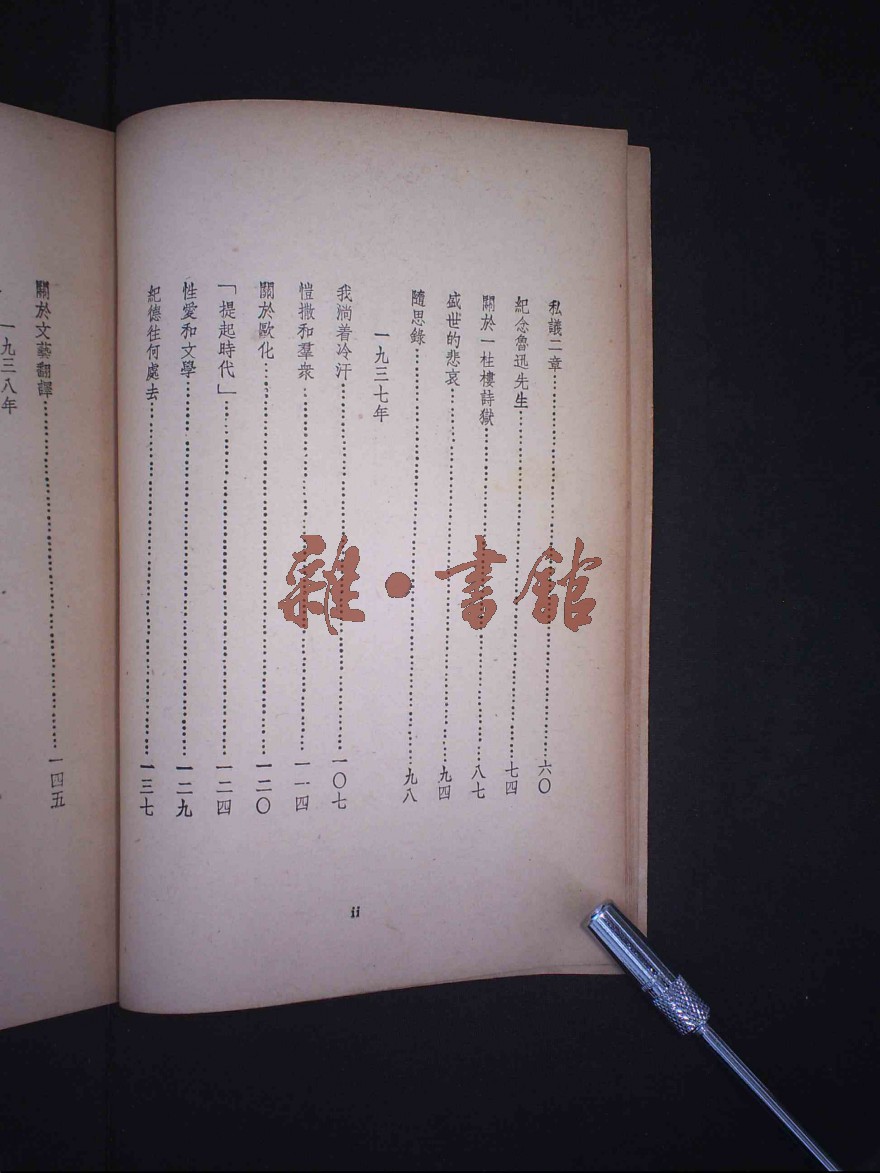 私議二章 六〇
紀念魯迅先生 七四
關於一柱樓詩獄 八七
盛世的悲哀 九四
隨思錄 九八
一九三七年
我淌着冷汗 一〇七
愷撒和羣衆 一一四
關於歐化 一二〇
「提起時代」 一二四
性愛和文學 一二九
紀德往何處去 一三七
ii
關於文藝翻譯 一四五
一九三八年
雜·書館